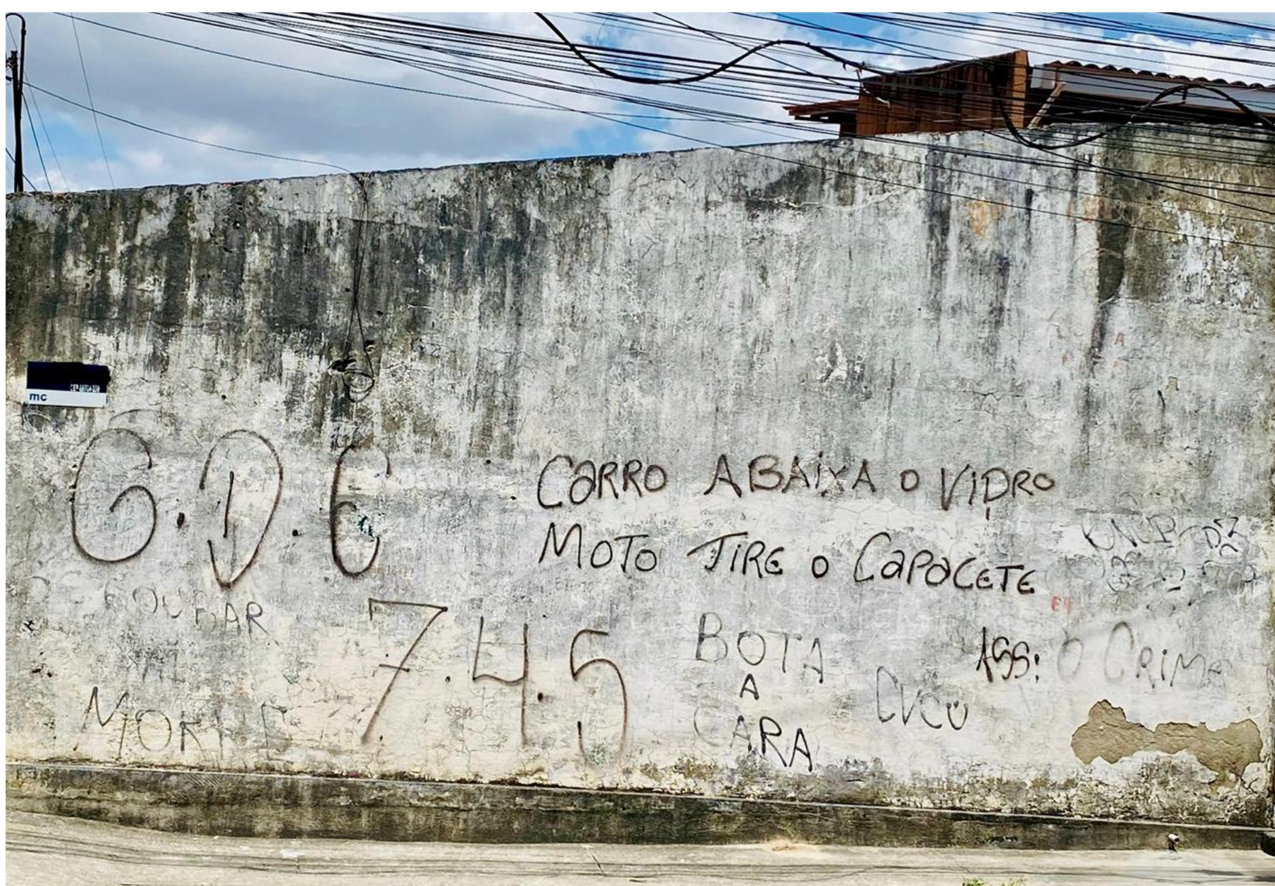 mc
G.D.E
CARRO ABAIXA O VIDRO
MOTO TIRE O CAPACETE
SE ROUBAR
VAI
MORRE
7.4.5
BOTA
A
CARA
CVCU
ASS: O CRIME